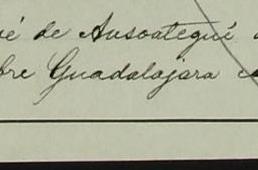 é de Ausoategué
bre Guadalajara